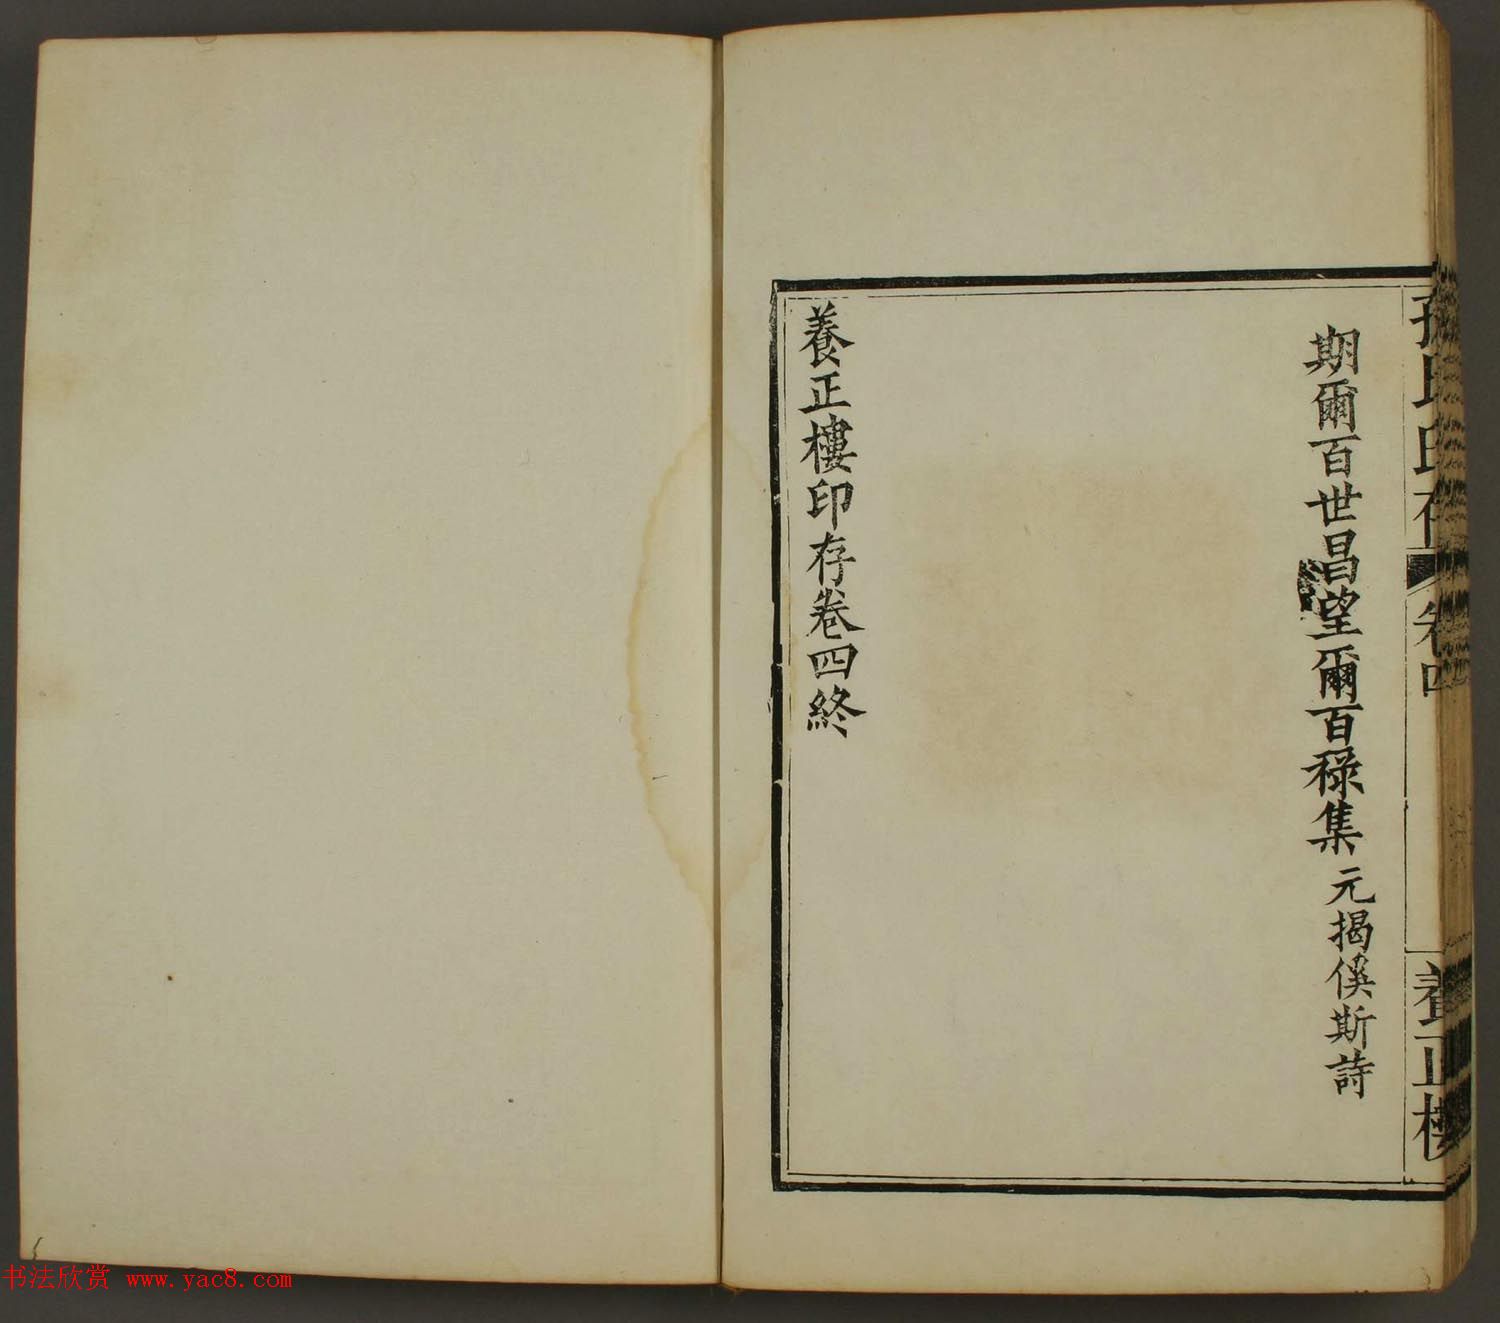 孫氏印存 卷四 養正樓
期爾百世昌望爾百祿集 元揭傒斯詩
養正樓印存卷四終
书法欣赏 www.yac8.com